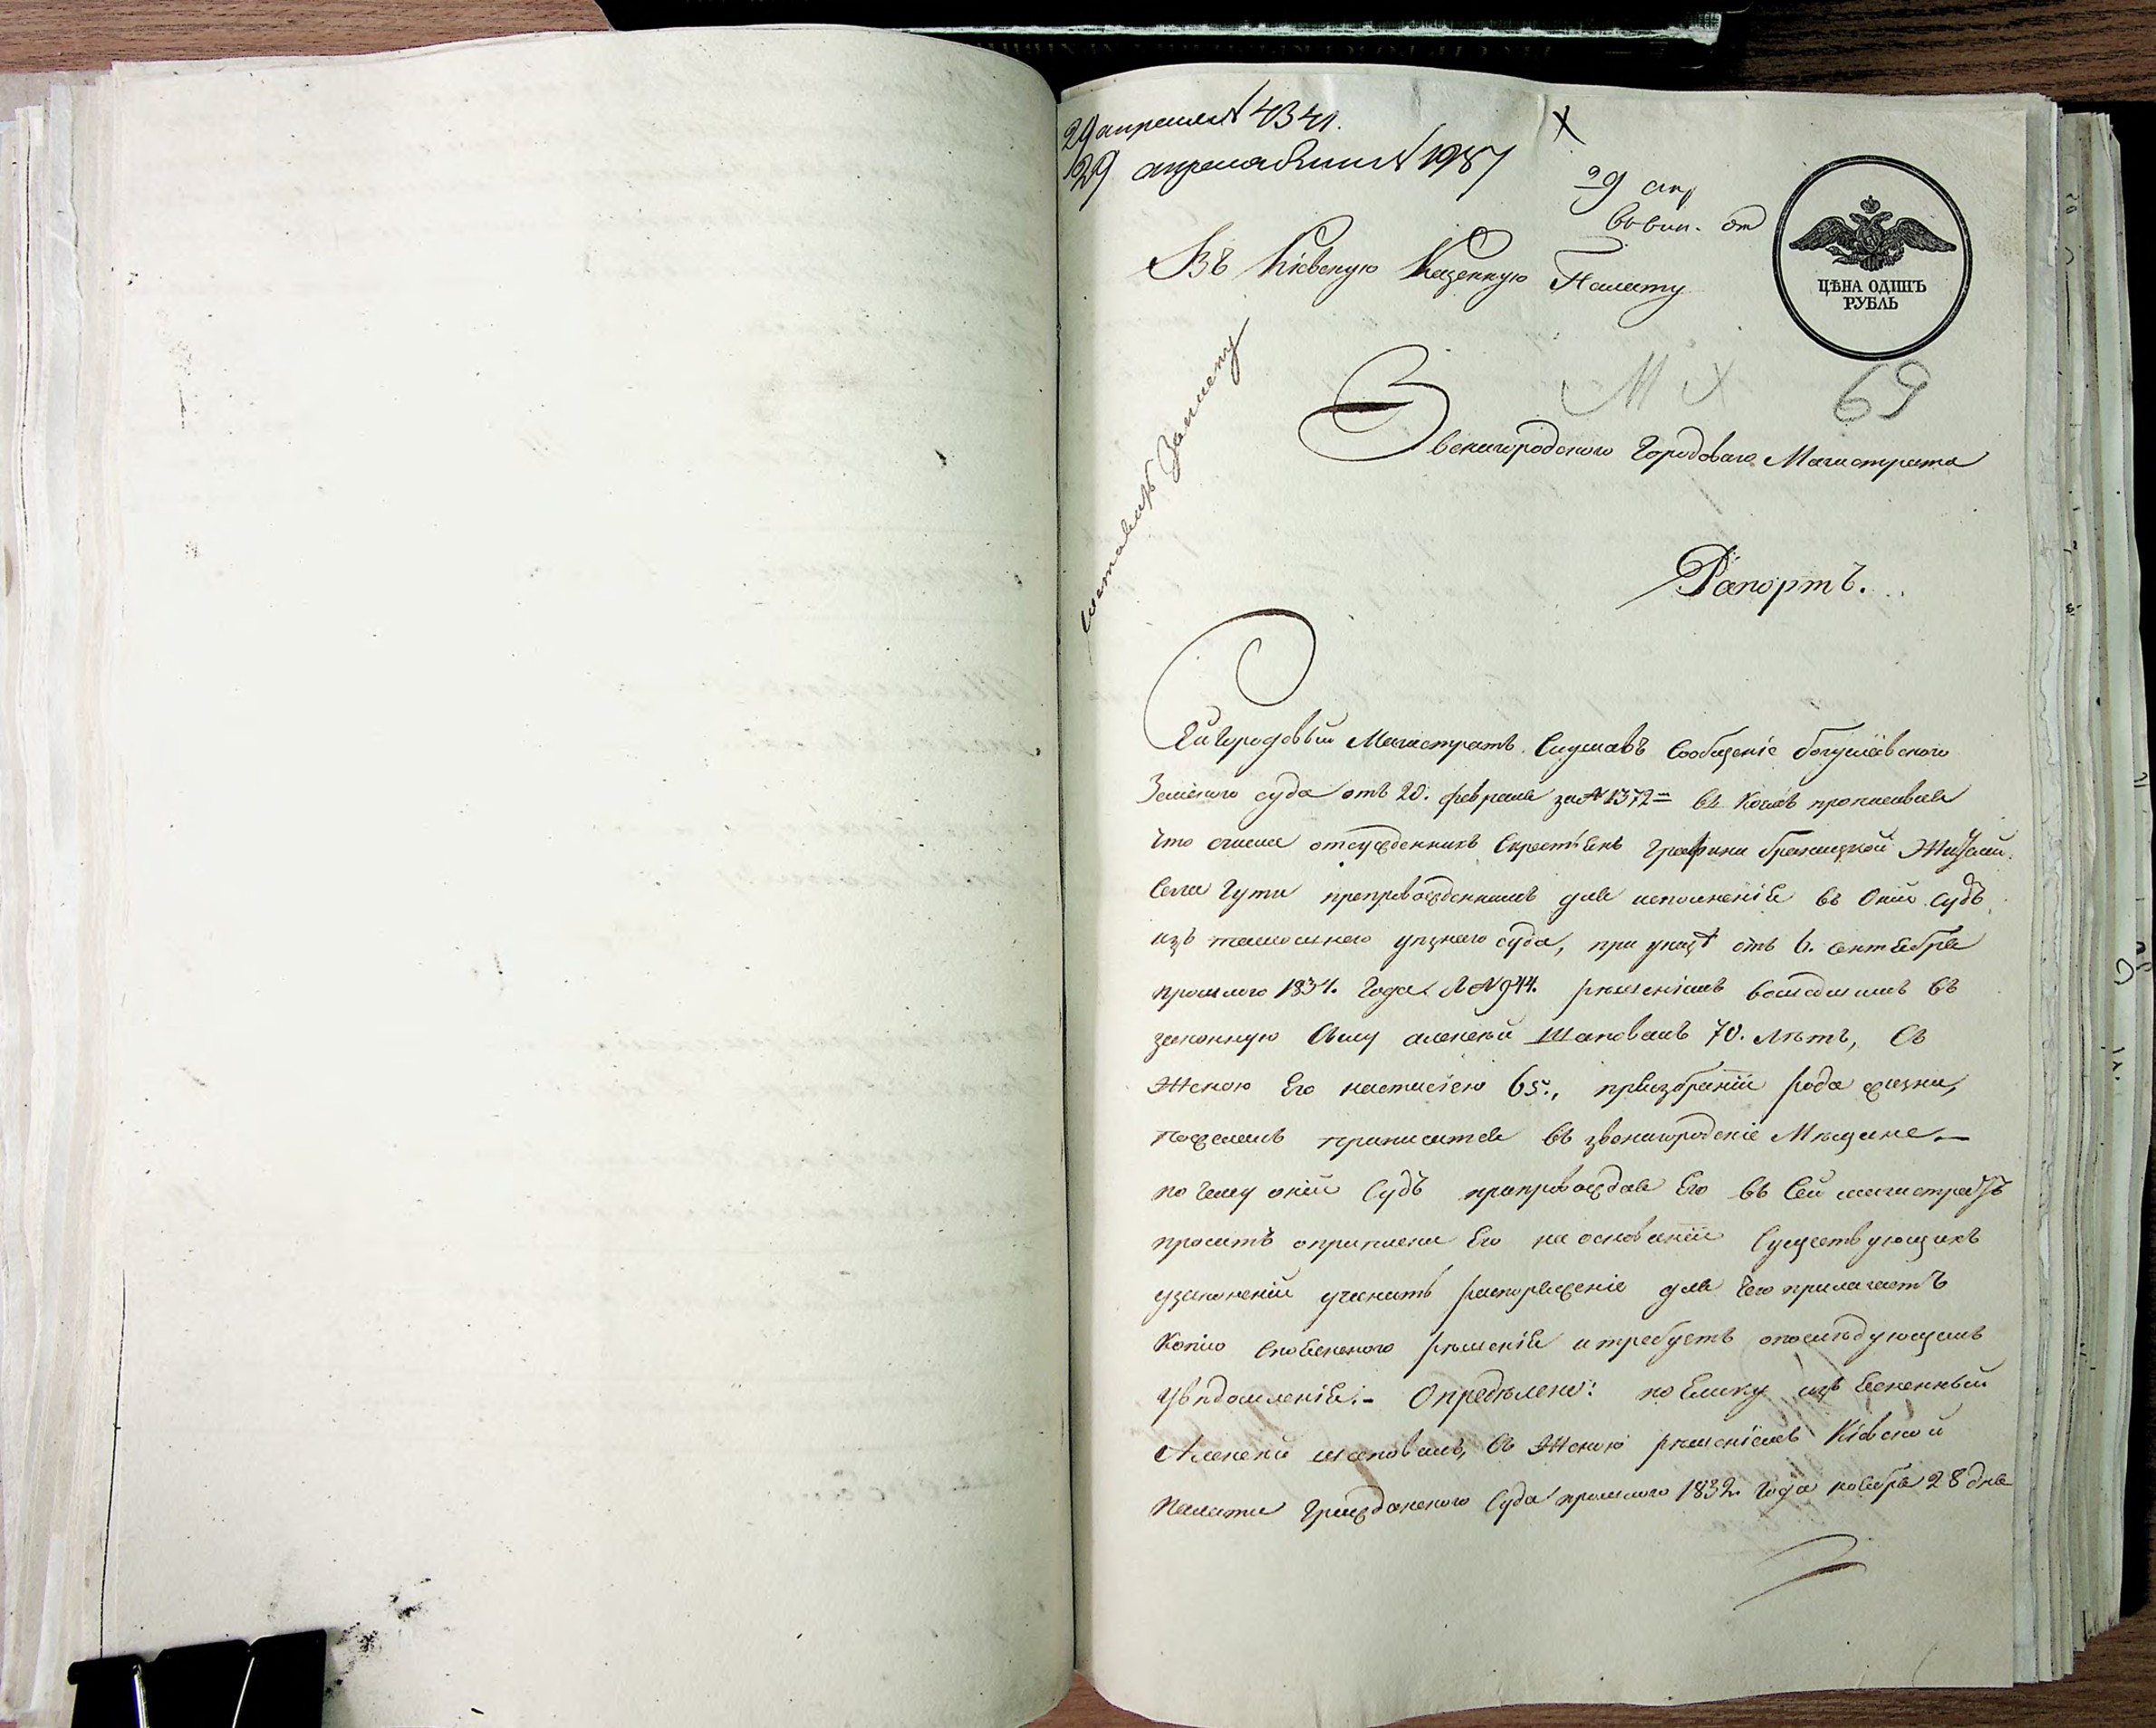 29 апреля № 4341.
29 апреля № 1987
29 апр
Въ Кіевскую Казенную Палату
ЦѢНА ОДИНЪ
РУБЛЬ
69
Звенигородского Городоваго Магистрата
Рапортъ.
Сей Городовый Магистратъ Слушавъ Сообщеніе богуславского
Земского суда отъ 20. февраля за № 1372 = въ коемъ прописывая
что список отсужденнихъ Скрестьянъ Графини браницкой Жителй
села Гути препровожденнимъ для исполненія въ Оний Судъ
изъ тамошнего уѣзного суда, при указѣ отъ 6. сентября
прошлого 1834. Года № 944. рѣшеніямъ вошедшимъ въ
законную Силу алексѣй Шаповалъ 70. Лѣтъ, Съ
Женою Его настасіею 65., приизбраніи рода жизни,
пожелалъ приписатся въ звенигородскіе Мѣщане. —
по чему оній Судъ препровождая Его въ Сей магистратъ
проситъ оприписки Его на основаніи Существующихъ
узаконеній учинить распоряженіе для чего прилагаетъ
Копію Сповсеного рѣшенія итребуетъ опослѣдующемъ
Увѣдомленія. - Опредѣлено: по Елику изъясненный
Алексѣй шаповалъ, Съ Женою рѣшеніемъ Кіевской
Палати Гражданского Суда прошлого 1832. Года ноября 28 дня